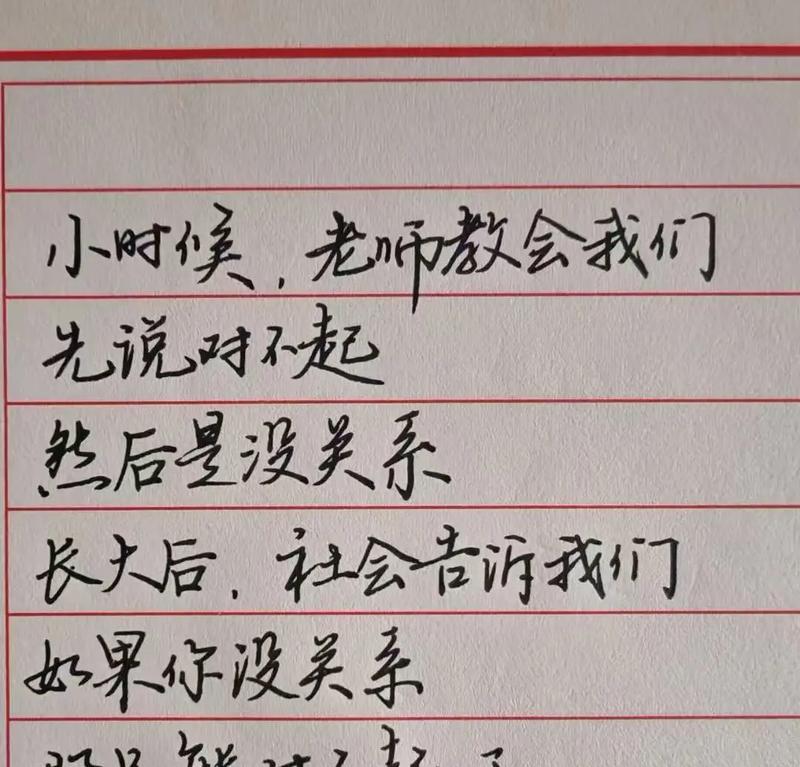 小时候,老师教会我们
先说对不起
然后是没关系
长大后,社会告诉我们
如果你没关系